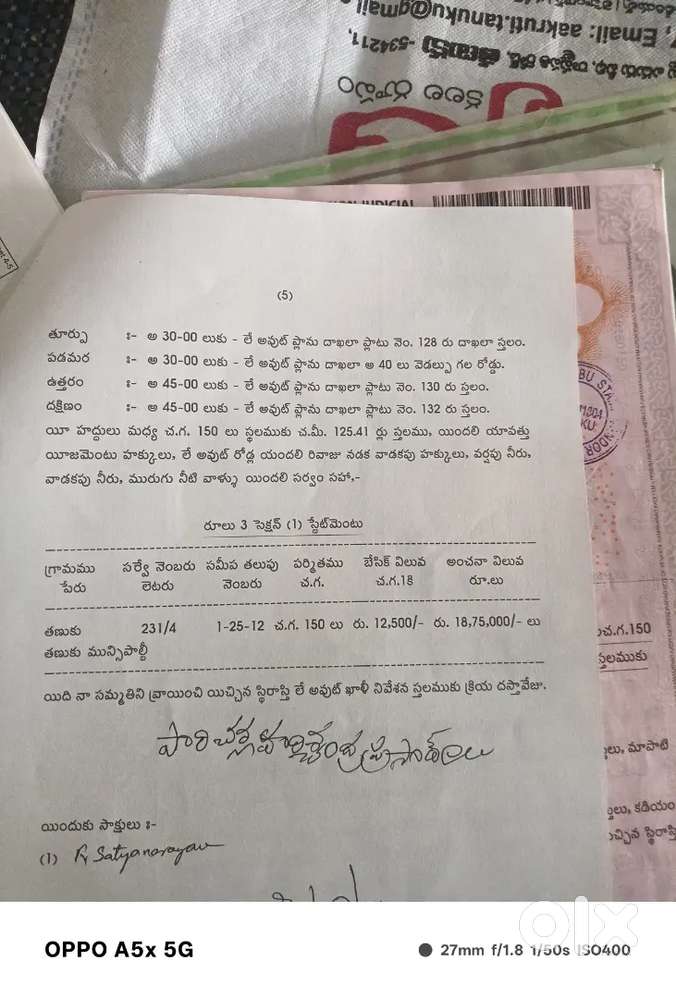 Email: aakruti.tanuku@gmail
-534211,
కలల రూపం
NON JUDICIAL
(5)
తూర్పు :- అ 30-00 లుకు - లే అవుట్ ప్లాను దాఖలా ప్లాటు నెం. 128 రు దాఖలా స్తలం.
పడమర :- అ 30-00 లుకు - లే అవుట్ ప్లాను దాఖలా అ 40 లు వెడల్పు గల రోడ్డు.
ఉత్తరం :- అ 45-00 లుకు - లే అవుట్ ప్లాను దాఖలా ప్లాటు నెం. 130 రు స్తలం.
దక్షిణం :- అ 45-00 లుకు - లే అవుట్ ప్లాను దాఖలా ప్లాటు నెం. 132 రు స్తలం.
యీ హద్దులు మధ్య చ.గ. 150 లు స్థలముకు చ.మీ. 125.41 ర్లు స్తలము, యిందలి యావత్తు
యీజమెంటు హక్కులు, లే అవుట్ రోడ్ల యందలి రివాజు నడక వాడకపు హక్కులు, వర్షపు నీరు,
వాడకపు నీరు, మురుగు నీటి వాళ్ళు యిందలి సర్వం సహా,-
రూలు 3 సెక్షన్ (1) స్టేట్‌మెంటు
గ్రామము సర్వే నెంబరు సమీప తలుపు పర్మితము బేసిక్ విలువ అంచనా విలువ
పేరు లెటరు నెంబరు చ.గ. చ.గ.18 రూ.లు
తణుకు 231/4 1-25-12 చ.గ. 150 లు రు. 12,500/- రు. 18,75,000/- లు
తణుకు మున్సిపాల్టీ
యిది నా సమ్మతిని వ్రాయించి యిచ్చిన స్థిరాస్తి లే అవుట్ ఖాళీ నివేశన స్తలముకు క్రియ దస్తావేజు.
యిందుకు సాక్షులు :-
(1) R Satyanarayan
చ.గ.150
స్తలముకు
లు, మాపాటి
లు, కడియం
చ్చిన స్థిరాస్తి
olx
OPPO A5x 5G
27mm f/1.8 1/50s ISO400